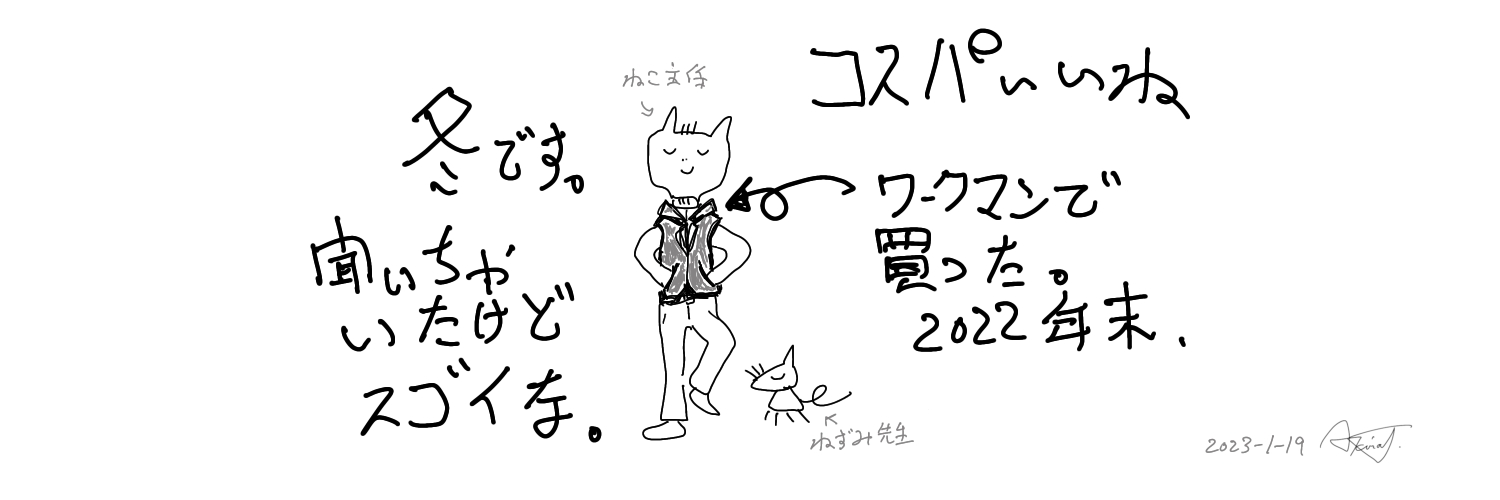 冬です。
聞いちゃ
いたけど
スゴイな。
ねこ主任
コスパいいね
ワークマンで
買った。
2022年末、
ねずみ先生
2023-1-19